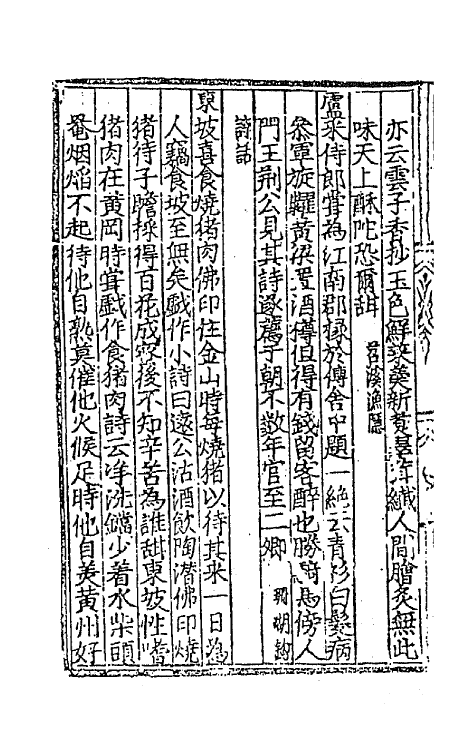 亦云雲子香抄玉色鮮菜羮新煑薹芽纎人間膾炙無此
味天上酥陀恐爾甜　苕溪漁隱
盧秉侍郎甞為江南郡掾於傳舎中題一絶云青衫白髮病
叅軍旋糶黄粱置酒樽但得有錢留客醉也勝騎馬傍人
門王荆公見其詩遂薦于朝不數年官至二卿　珊瑚鈎
詩話
東坡喜食燒猪肉佛印住金山時每燒猪以待其来一日為
人竊食坡至無矣戲作小詩曰遠公沽酒飲陶潜佛印燒
猪待子瞻採得百花成蜜後不知辛苦為誰甜東坡性嗜
猪肉在黄岡時甞戲作食猪肉詩云净洗鐺少着水柴頭
罨烟焰不起待他自熟莫催他火候足時他自美黄州好